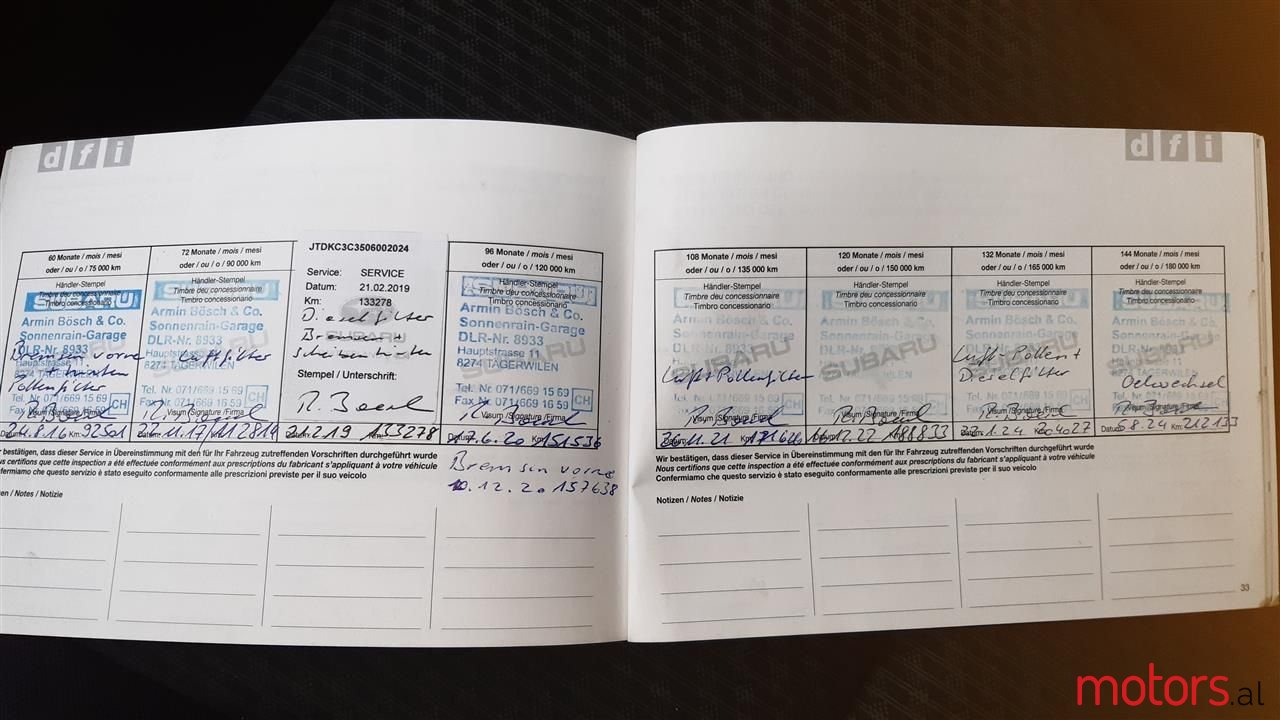 dfi
60 Monate / mois / mesi
oder / ou / o / 75 000 km
Händler-Stempel
Timbre deu concessionnaire
Timbro concessionario
SUBARU
Armin Bösch & Co.
Sonnenrain-Garage
DLR-Nr. 8933
Hauptstrasse 11
8274 TÄGERWILEN
vorne
Pollenfilter
Tel. Nr. 071/669 15 69
CH
Visum /Signature /Firma
Datum 24.8.16 Km: 92501
72 Monate / mois / mesi
oder / ou / o / 90 000 km
Händler-Stempel
Timbre deu concessionnaire
Timbro concessionario
Armin Bösch & Co.
Sonnenrain-Garage
DLR-Nr. 8933
Hauptstrasse 11
8274 TÄGERWILEN
Luftfilter
Tel. Nr. 071/669 15 69
CH
Visum /Signature /Firma
112814
JTDKC3C3506002024
Service: SERVICE
Datum: 21.02.2019
Km: 133278
Dieselfilter
Bremsen +
scheiben hinten
SUBARU
Stempel / Unterschrift:
21.2.19 133278
96 Monate / mois / mesi
oder / ou / o / 120 000 km
Händler-Stempel
Timbre deu concessionnaire
Timbro concessionario
Armin Bösch & Co.
Sonnenrain-Garage
DLR-Nr. 8933
Hauptstrasse 11
8274 TÄGERWILEN
Tel. Nr. 071/669 15 69
Fax Nr. 071/669 16 59
CH
Visum /Signature /Firma
Km: 151536
bestätigen, dass dieser Service in Übereinstimmung mit den für Ihr Fahrzeug zutreffenden Vorschriften durchgeführt wurde
Nous certifions que cette inspection a été effectuée conformément aux prescriptions du fabricant s'appliquant à votre véhicule
Confermiamo che questo servizio è stato eseguito conformamente alle prescrizioni previste per il suo veicolo
Bremsen vorne
10.12.20 157638
/ Notes / Notizie
dfi
108 Monate / mois / mesi
oder / ou / o / 135 000 km
Händler-Stempel
Timbre deu concessionnaire
Timbro concessionario
SUBARU
Luft + Pollenfilter
Visum /Signature /Firma
120 Monate / mois / mesi
oder / ou / o / 150 000 km
Händler-Stempel
Timbre deu concessionnaire
Timbro concessionario
SUBARU
Visum /Signature /Firma
12.22 Km: 188833
132 Monate / mois / mesi
oder / ou / o / 165 000 km
Händler-Stempel
Timbre deu concessionnaire
Timbro concessionario
Armin Bösch & Co.
Sonnenrain-Garage
Luft-Pollen +
Dieselfilter
SUBARU
Visum /Signature /Firma
1.24 204027
144 Monate / mois / mesi
oder / ou / o / 180 000 km
Händler-Stempel
Timbre deu concessionnaire
Timbro concessionario
Armin Bösch & Co.
Sonnenrain-Garage
DLR-Nr. 8933
Oelwechsel
Visum /Signature /Firma
8.24 Km: 212133
Wir bestätigen, dass dieser Service in Übereinstimmung mit den für Ihr Fahrzeug zutreffenden Vorschriften durchgeführt wurde
Nous certifions que cette inspection a été effectuée conformément aux prescriptions du fabricant s'appliquant à votre véhicule
Confermiamo che questo servizio è stato eseguito conformamente alle prescrizioni previste per il suo veicolo
Notizen / Notes / Notizie
33
motors.al